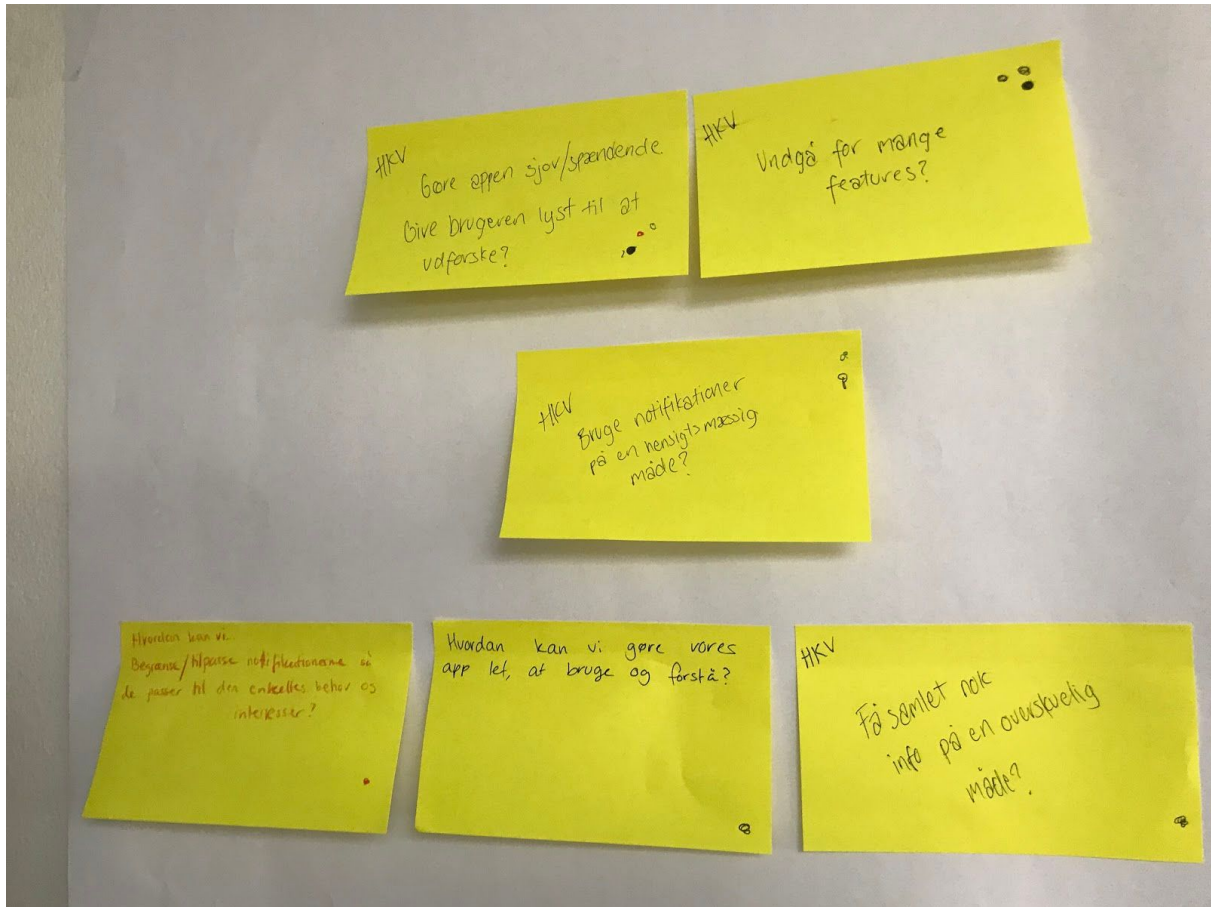 HKV
Gøre appen sjov/spændende
Give brugeren lyst til at
udforske?
HKV
Undgå for mange
features?
HKV
Bruge notifikationer
på en hensigtsmæssig
måde?
Hvordan kan vi
Begrænse/tilpasse notifikationerne så
de passer til den enkeltes behov og
interesser?
Hvordan kan vi gøre vores
app let, at bruge og forstå?
HKV
Få samlet nok
info på en overskuelig
måde?